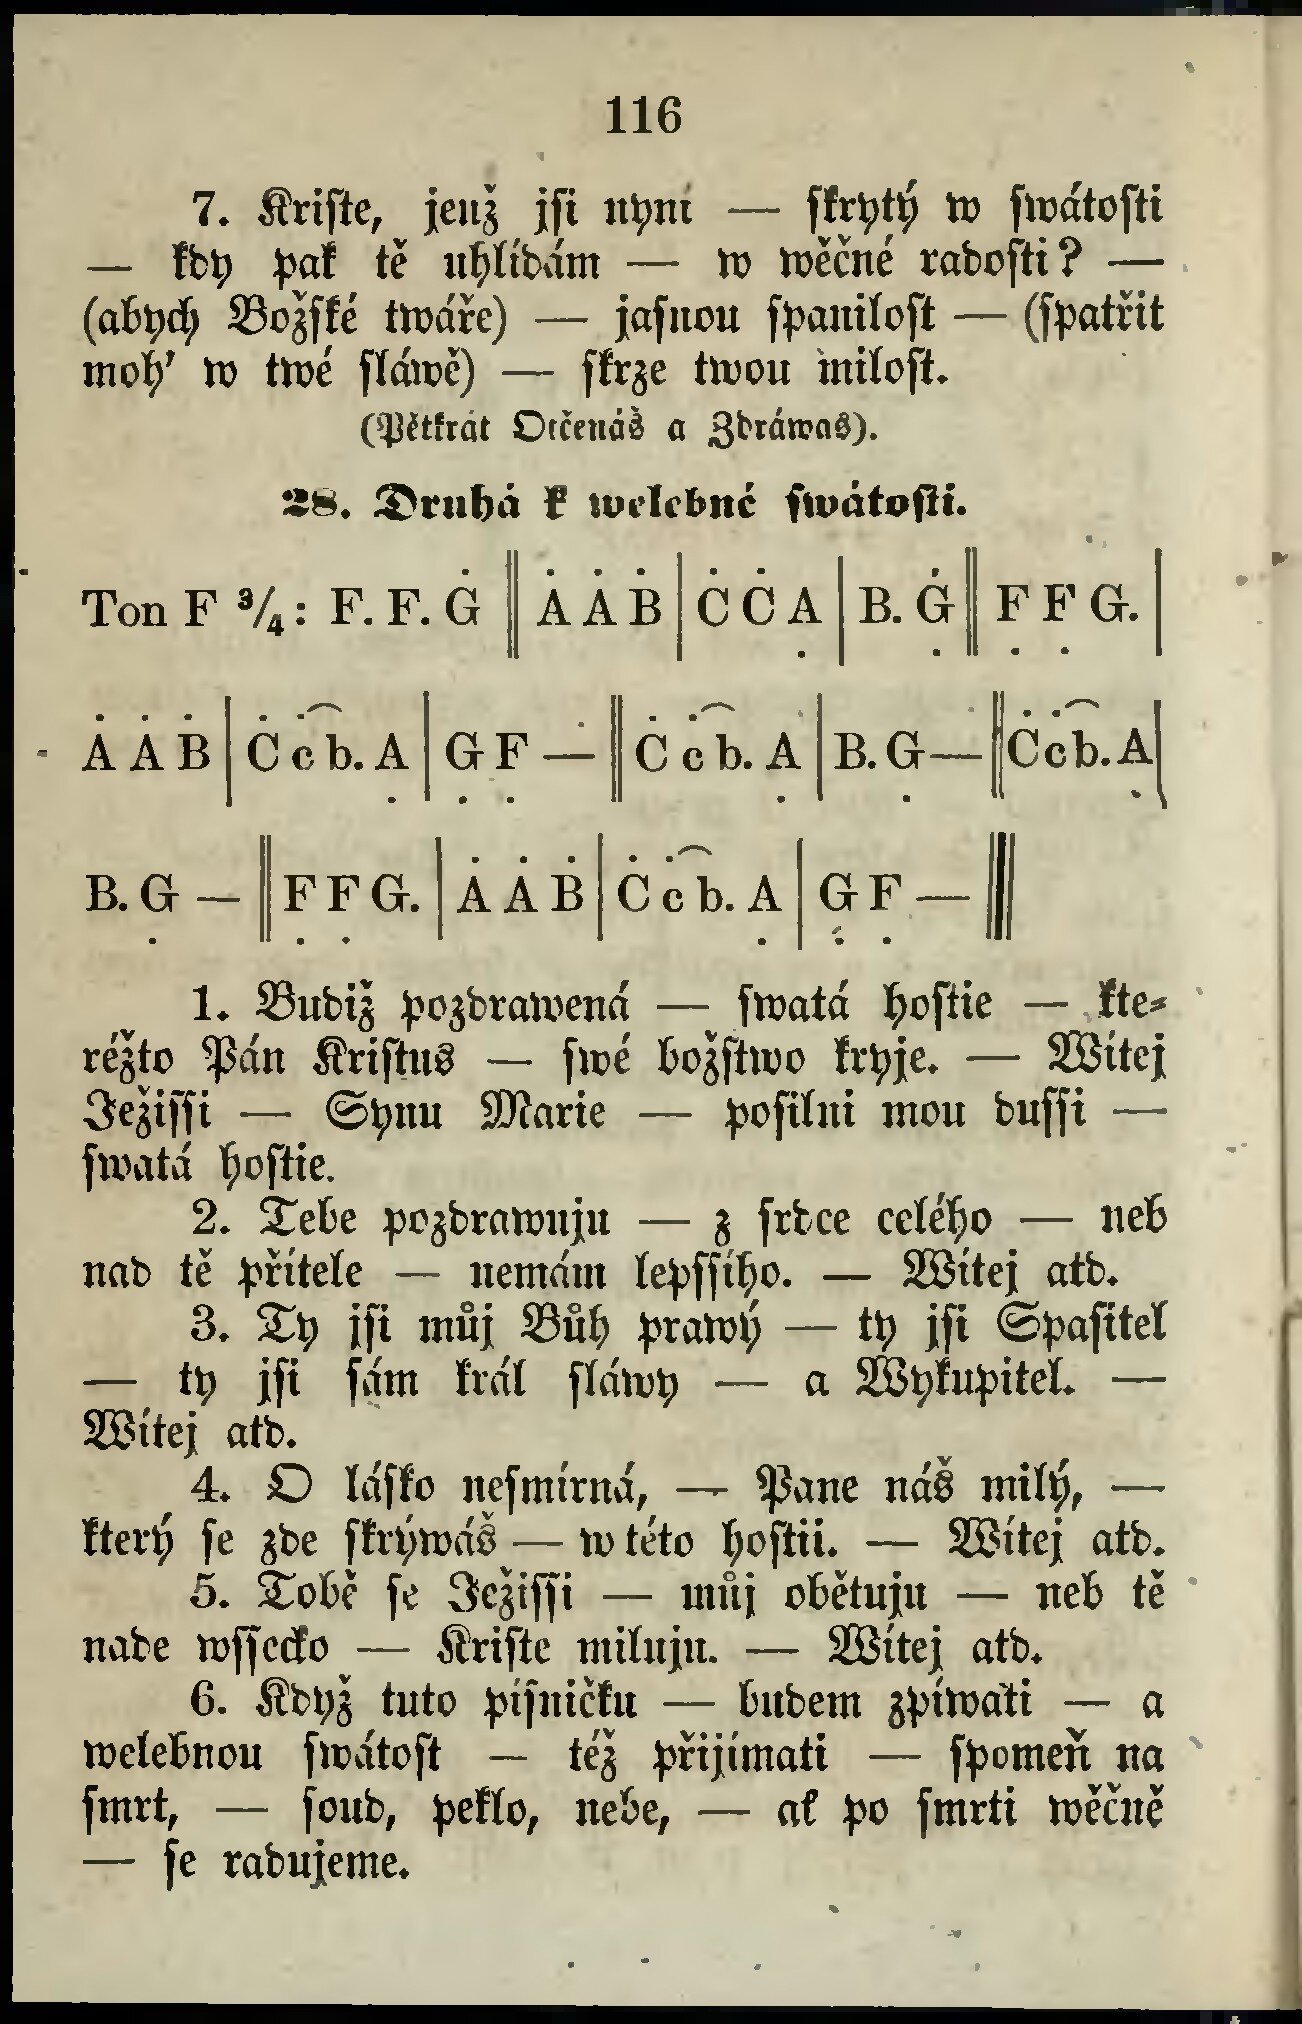 116
7. Kriste, jenž jsi nyní — skrytý w swátosti
— kdy pak tě uhlídám — w wěčné radosti? —
(abych Božské twáře) — jasnou spanilost — (spatřit
moh' w twé sláwě) — skrze twou milost.
(Pětkrát Otčenáš a Zdráwas).
28. Druhá k welebné swátosti.
Ton F ¾: F. F. Ġ ‖ Ȧ Ȧ Ḃ | Ċ Ċ Ạ | B. Ġ̣ ‖ F̣ F̣ G. |
Ȧ Ȧ Ḃ | Ċ ċ b. Ạ | G̣ F̣ — ‖ Ċ ċ b. Ạ | B. G̣ — ‖ Ċ ċ b. Ạ |
B. G̣ — ‖ F̣ F̣ G. | Ȧ Ȧ Ḃ | Ċ ċ b. Ạ | G̣ F̣ — ‖|
1. Budiž pozdrawená — swatá hostie — kte-
réžto Pán Kristus — swé božstwo kryje. — Wítej
Ježissi — Synu Marie — posilni mou dussi —
swatá hostie.
2. Tebe pozdrawuju — z srdce celého — neb
nad tě přítele — nemám lepssího. — Wítej atd.
3. Ty jsi můj Bůh prawý — ty jsi Spasitel
— ty jsi sám král sláwy — a Wykupitel. —
Wítej atd.
4. O lásko nesmírná, — Pane náš milý, —
který se zde skrýwáš — w této hostii. — Wítej atd.
5. Tobě se Ježissi — můj obětuju — neb tě
nade wssecko — Kriste miluju. — Wítej atd.
6. Když tuto písničku — budem zpíwati — a
welebnou swátost — též přijímati — spomeň na
smrt, — soud, peklo, nebe, — ať po smrti wěčně
— se radujeme.